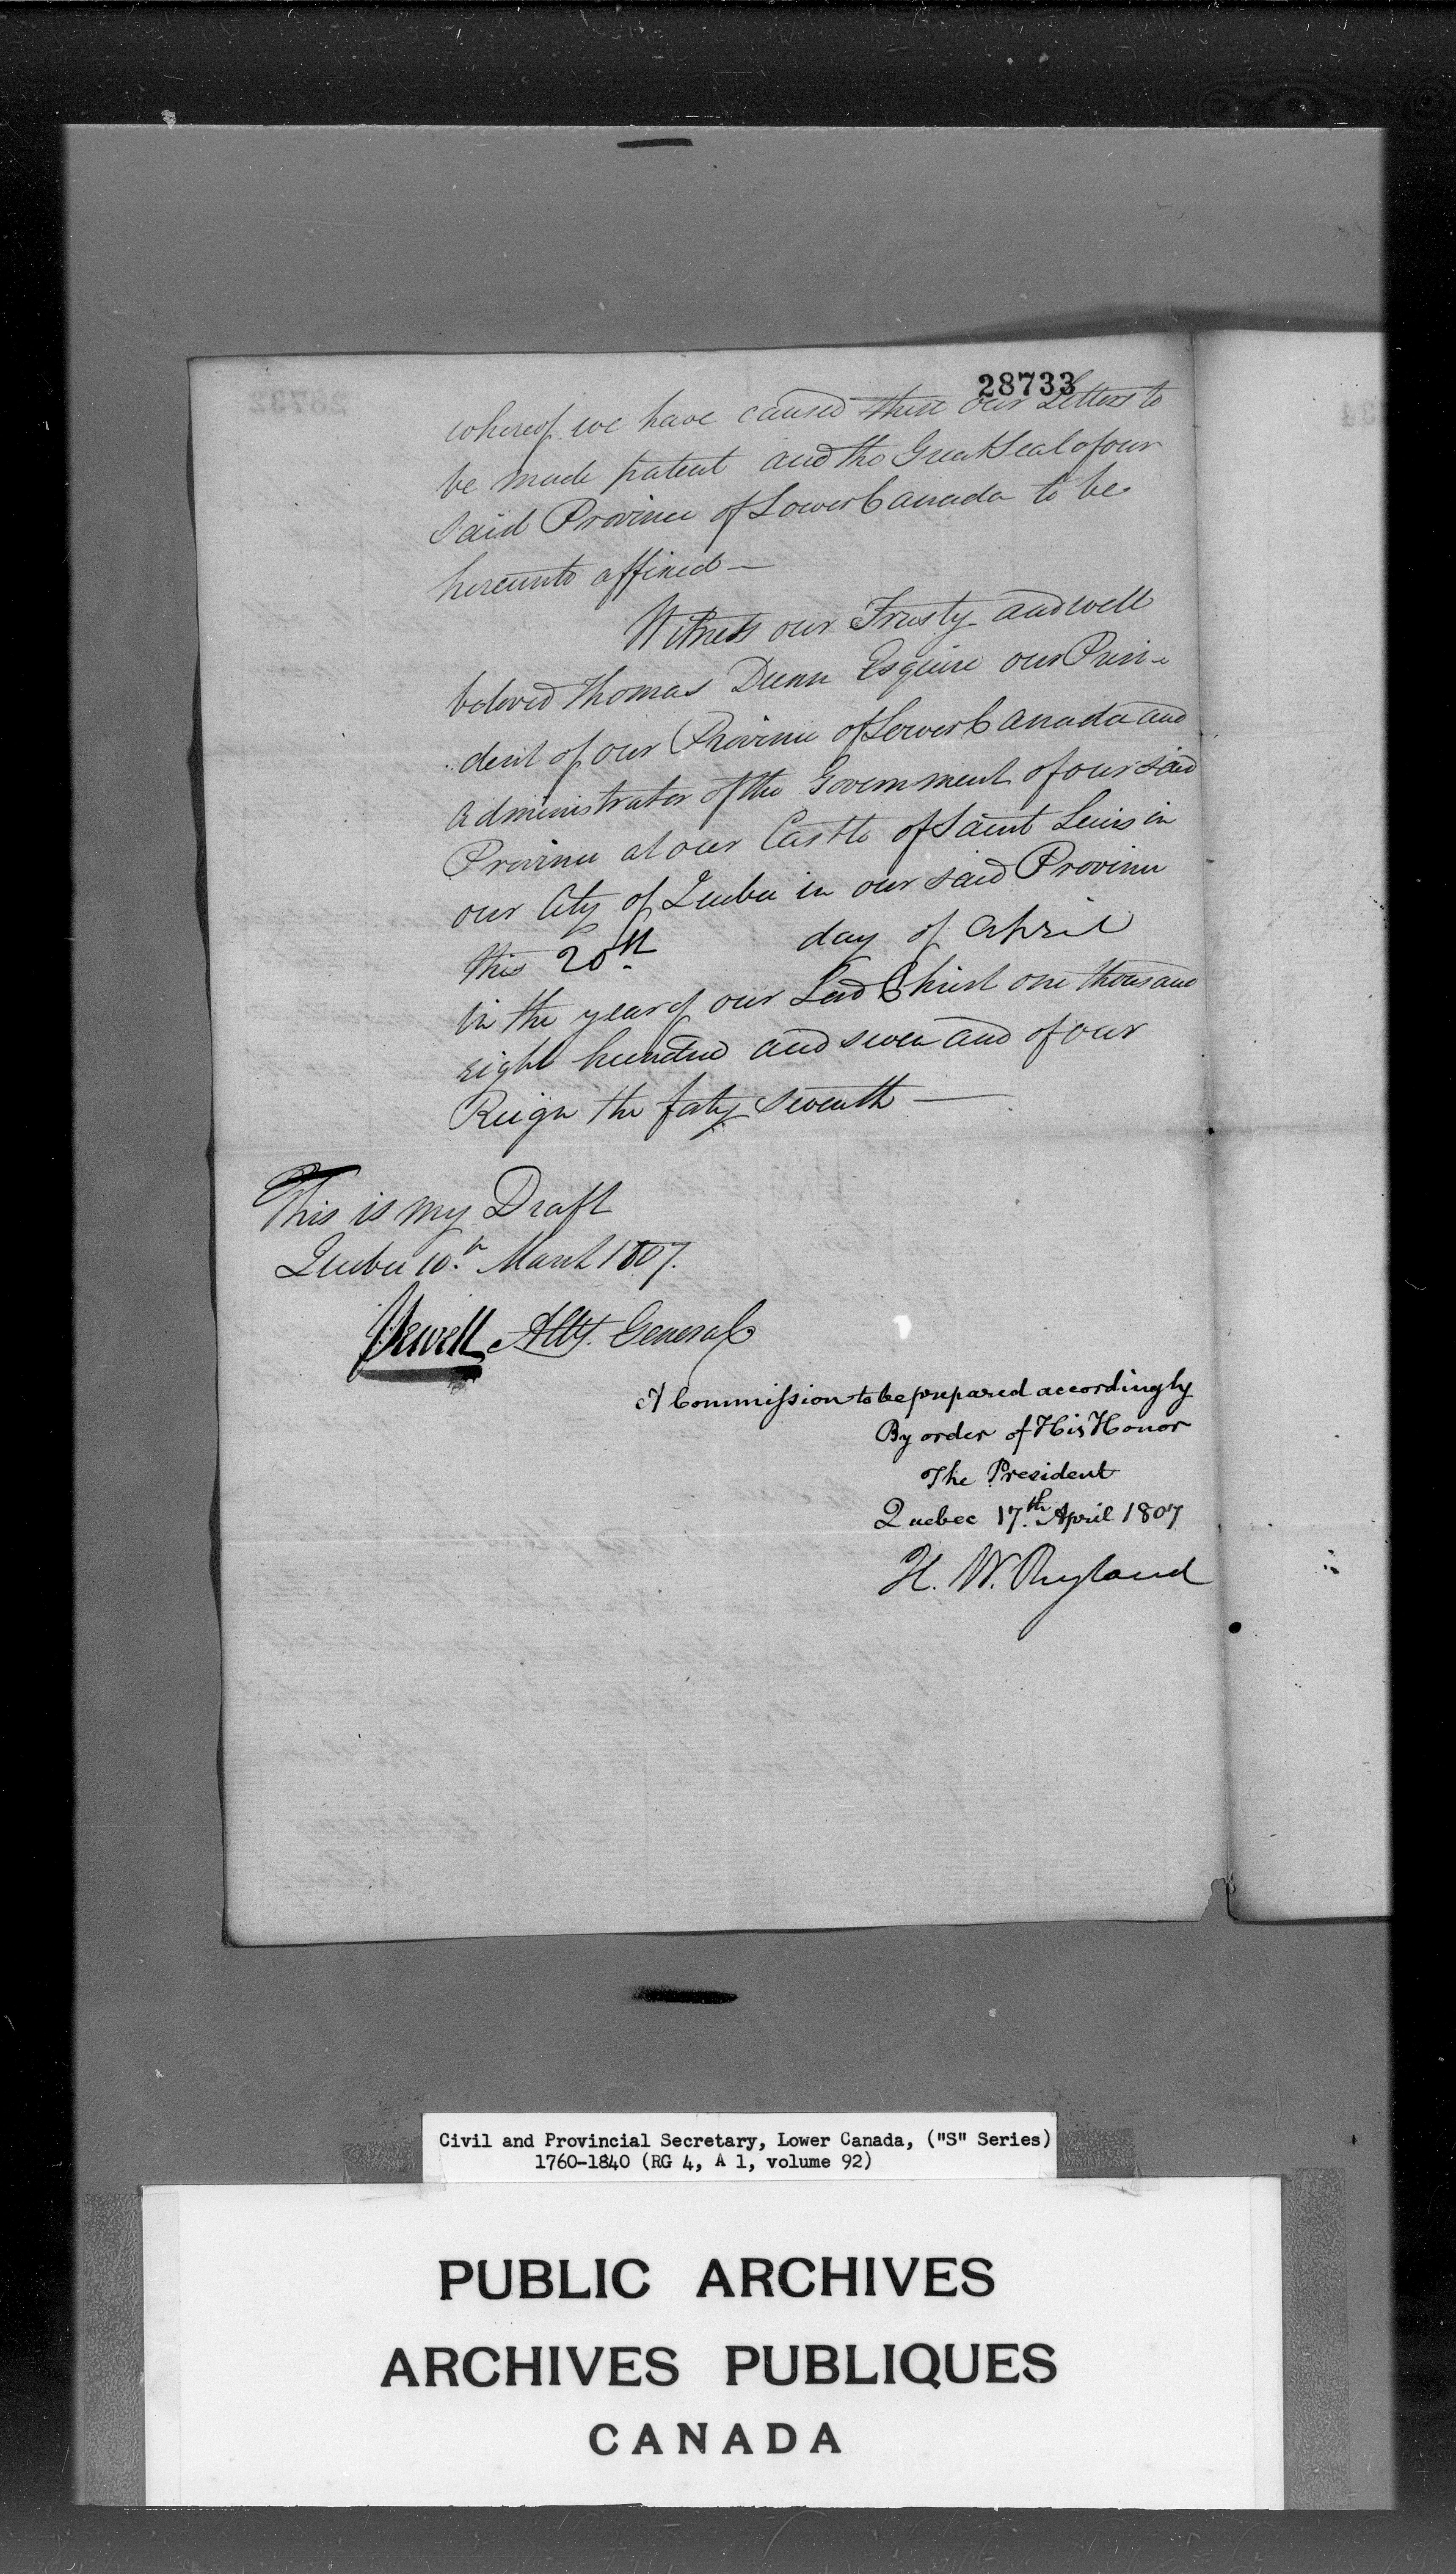 28733
whereof we have caused these our Letters to
be made patent and the Great Seal of our
said Province of Lower Canada to be
hereunto affixed —
Witness our Trusty and well
beloved Thomas Dunn Esquire our Presi-
dent of our Province of Lower Canada and
Administrator of the Government of our said
Province at our Castle of Saint Lewis in
our City of Quebec in our said Province
this 20th day of April
in the year of our Lord Christ one thousand
eight hundred and seven and of our
Reign the forty seventh —
This is my Draft
Quebec 10.th March 1807.
J Sewell Atty. General
A Commission to be prepared accordingly
By order of His Honor
The President
Quebec 17.th April 1807
H. W. Ryland
Civil and Provincial Secretary, Lower Canada, ("S" Series)
1760-1840 (RG 4, A 1, volume 92)
PUBLIC ARCHIVES
ARCHIVES PUBLIQUES
CANADA